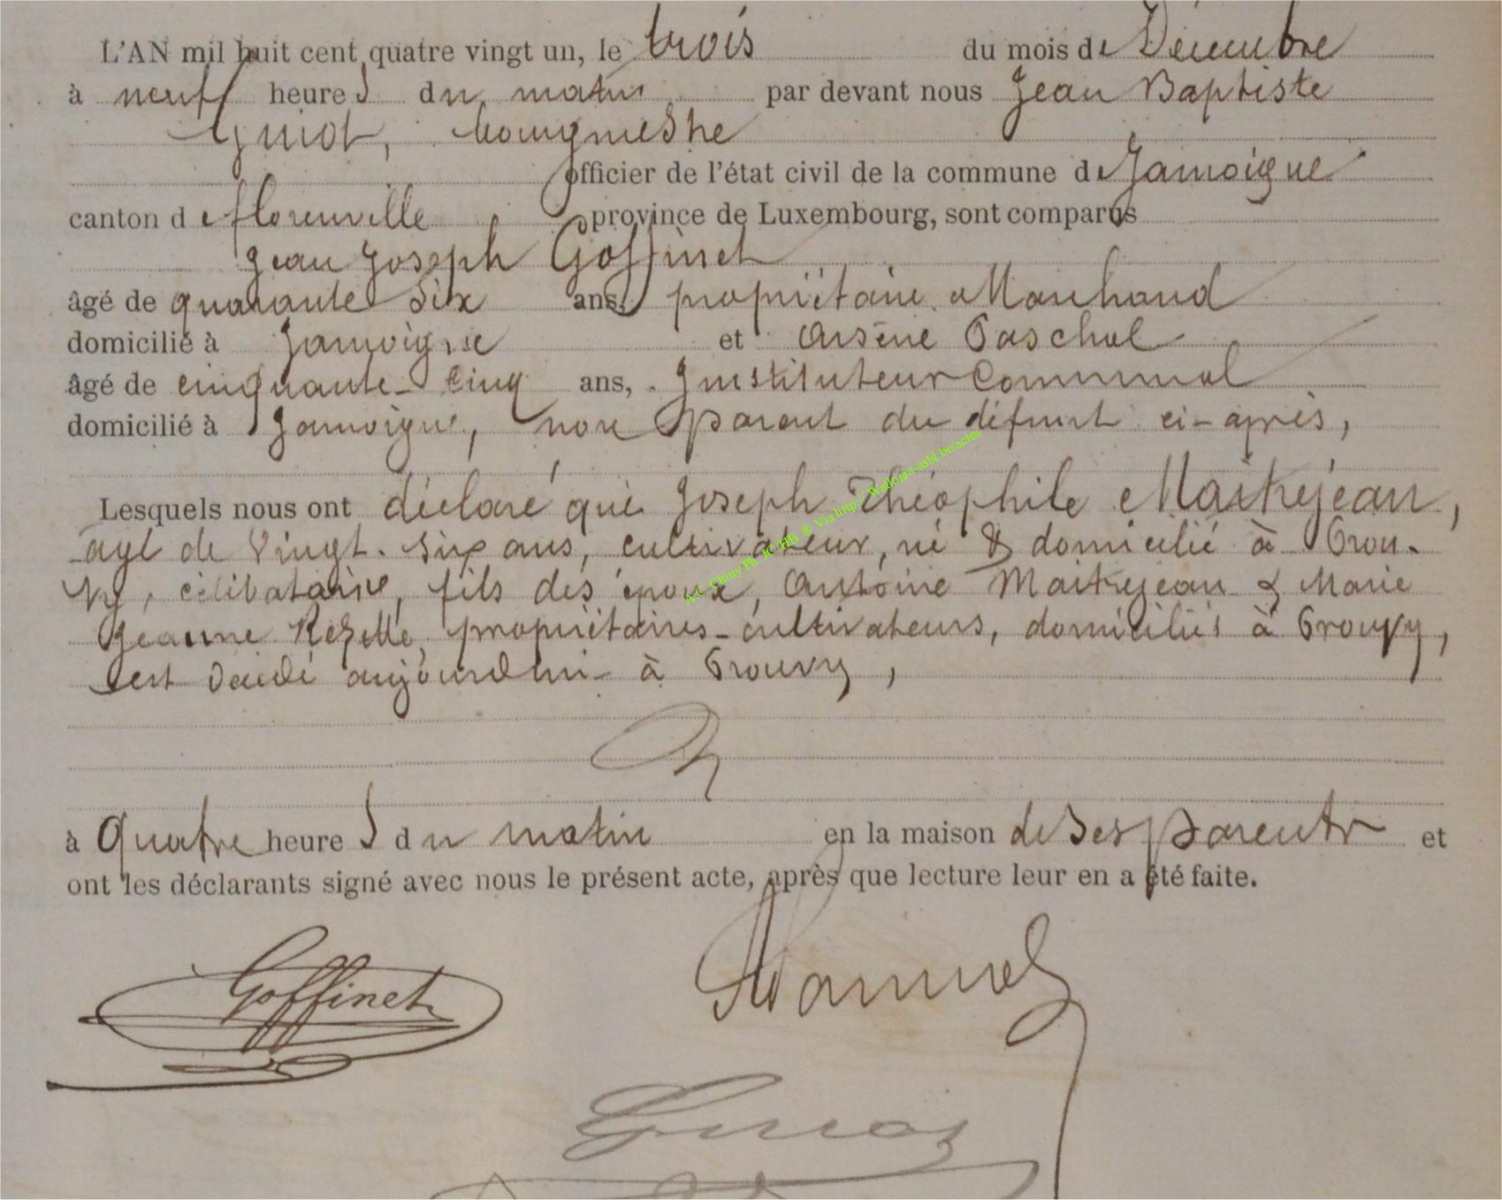 L'AN mil huit cent quatre vingt un, le trois du mois de Décembre
à neuf heures du matin par devant nous Jean Baptiste
Guiot, bourgmestre
officier de l'état civil de la commune de Jamoigne
canton de florenville province de Luxembourg, sont comparus
Jean Joseph Goffinet
âgé de quarante six ans, propriétaire Marchand
domicilié à Jamoigne et Arsène Paschal
âgé de cinquante-cinq ans, Instituteur Communal
domicilié à Jamoigne, non parent du défunt ci-après,
Lesquels nous ont déclaré que Joseph Théophile Maitrejean,
agé de Vingt-six ans, cultivateur, né & domicilié à Prou-
vy, célibataire, fils des époux, Antoine Maitrejean & Marie
Jeanne propriétaires-cultivateurs, domiciliés à Prouvy,
est décédé aujourdhui à Prouvy,
à Quatre heures du matin en la maison de ses parents et
ont les déclarants signé avec nous le présent acte, après que lecture leur en a été faite.
Goffinet